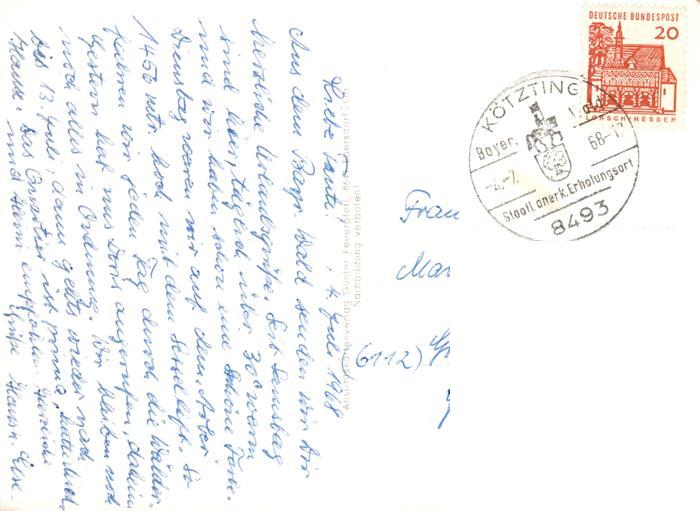 Liebe Tanti! 4. Juli 1968
Aus dem Bayr. Wald senden wir Dir
herzliche Urlaubsgrüße. Seit Samstag
sind hier täglich über 30° warm
und wir haben schon eine schöne Farbe.
Dienstag waren wir auf dem Arber
1456 mtr. hoch mit dem Sessellift. So
fahren wir jeden Tag durch die Wälder.
Gestern hat uns Dora angerufen, daheim
noch alles in Ordnung. Wir bleiben noch
bis 13. Juli, dann gehts wieder nach
Hause. Das Quartier ist prima,
und Grüße Hans u. Else.
Ansichtskartenverlag Günter Feuerpfeil
Nachbildung verboten!
DEUTSCHE BUNDESPOST
20
LORSCH/HESSEN
KÖTZTING
Bayer. Wald
-4.-7. 68-17
Staatl. anerk. Erholungsort
8493
Frau
Mar
(6112)